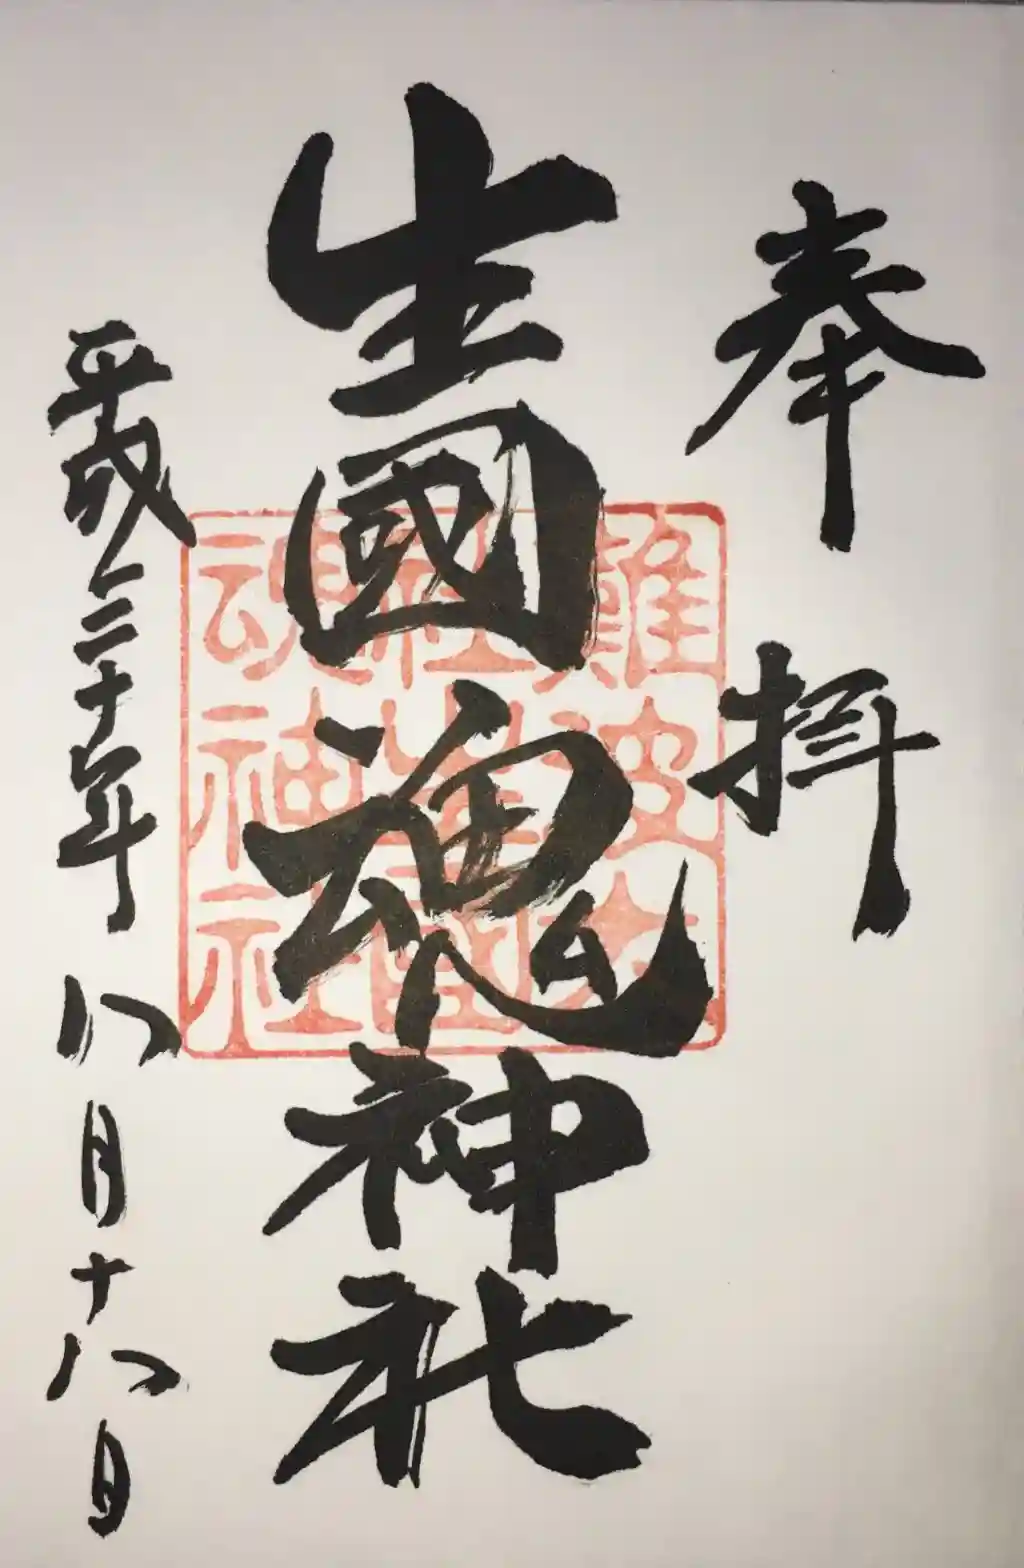 奉拝
生國魂神社
平成三十年八月十八日
難波大
社生國
魂神社